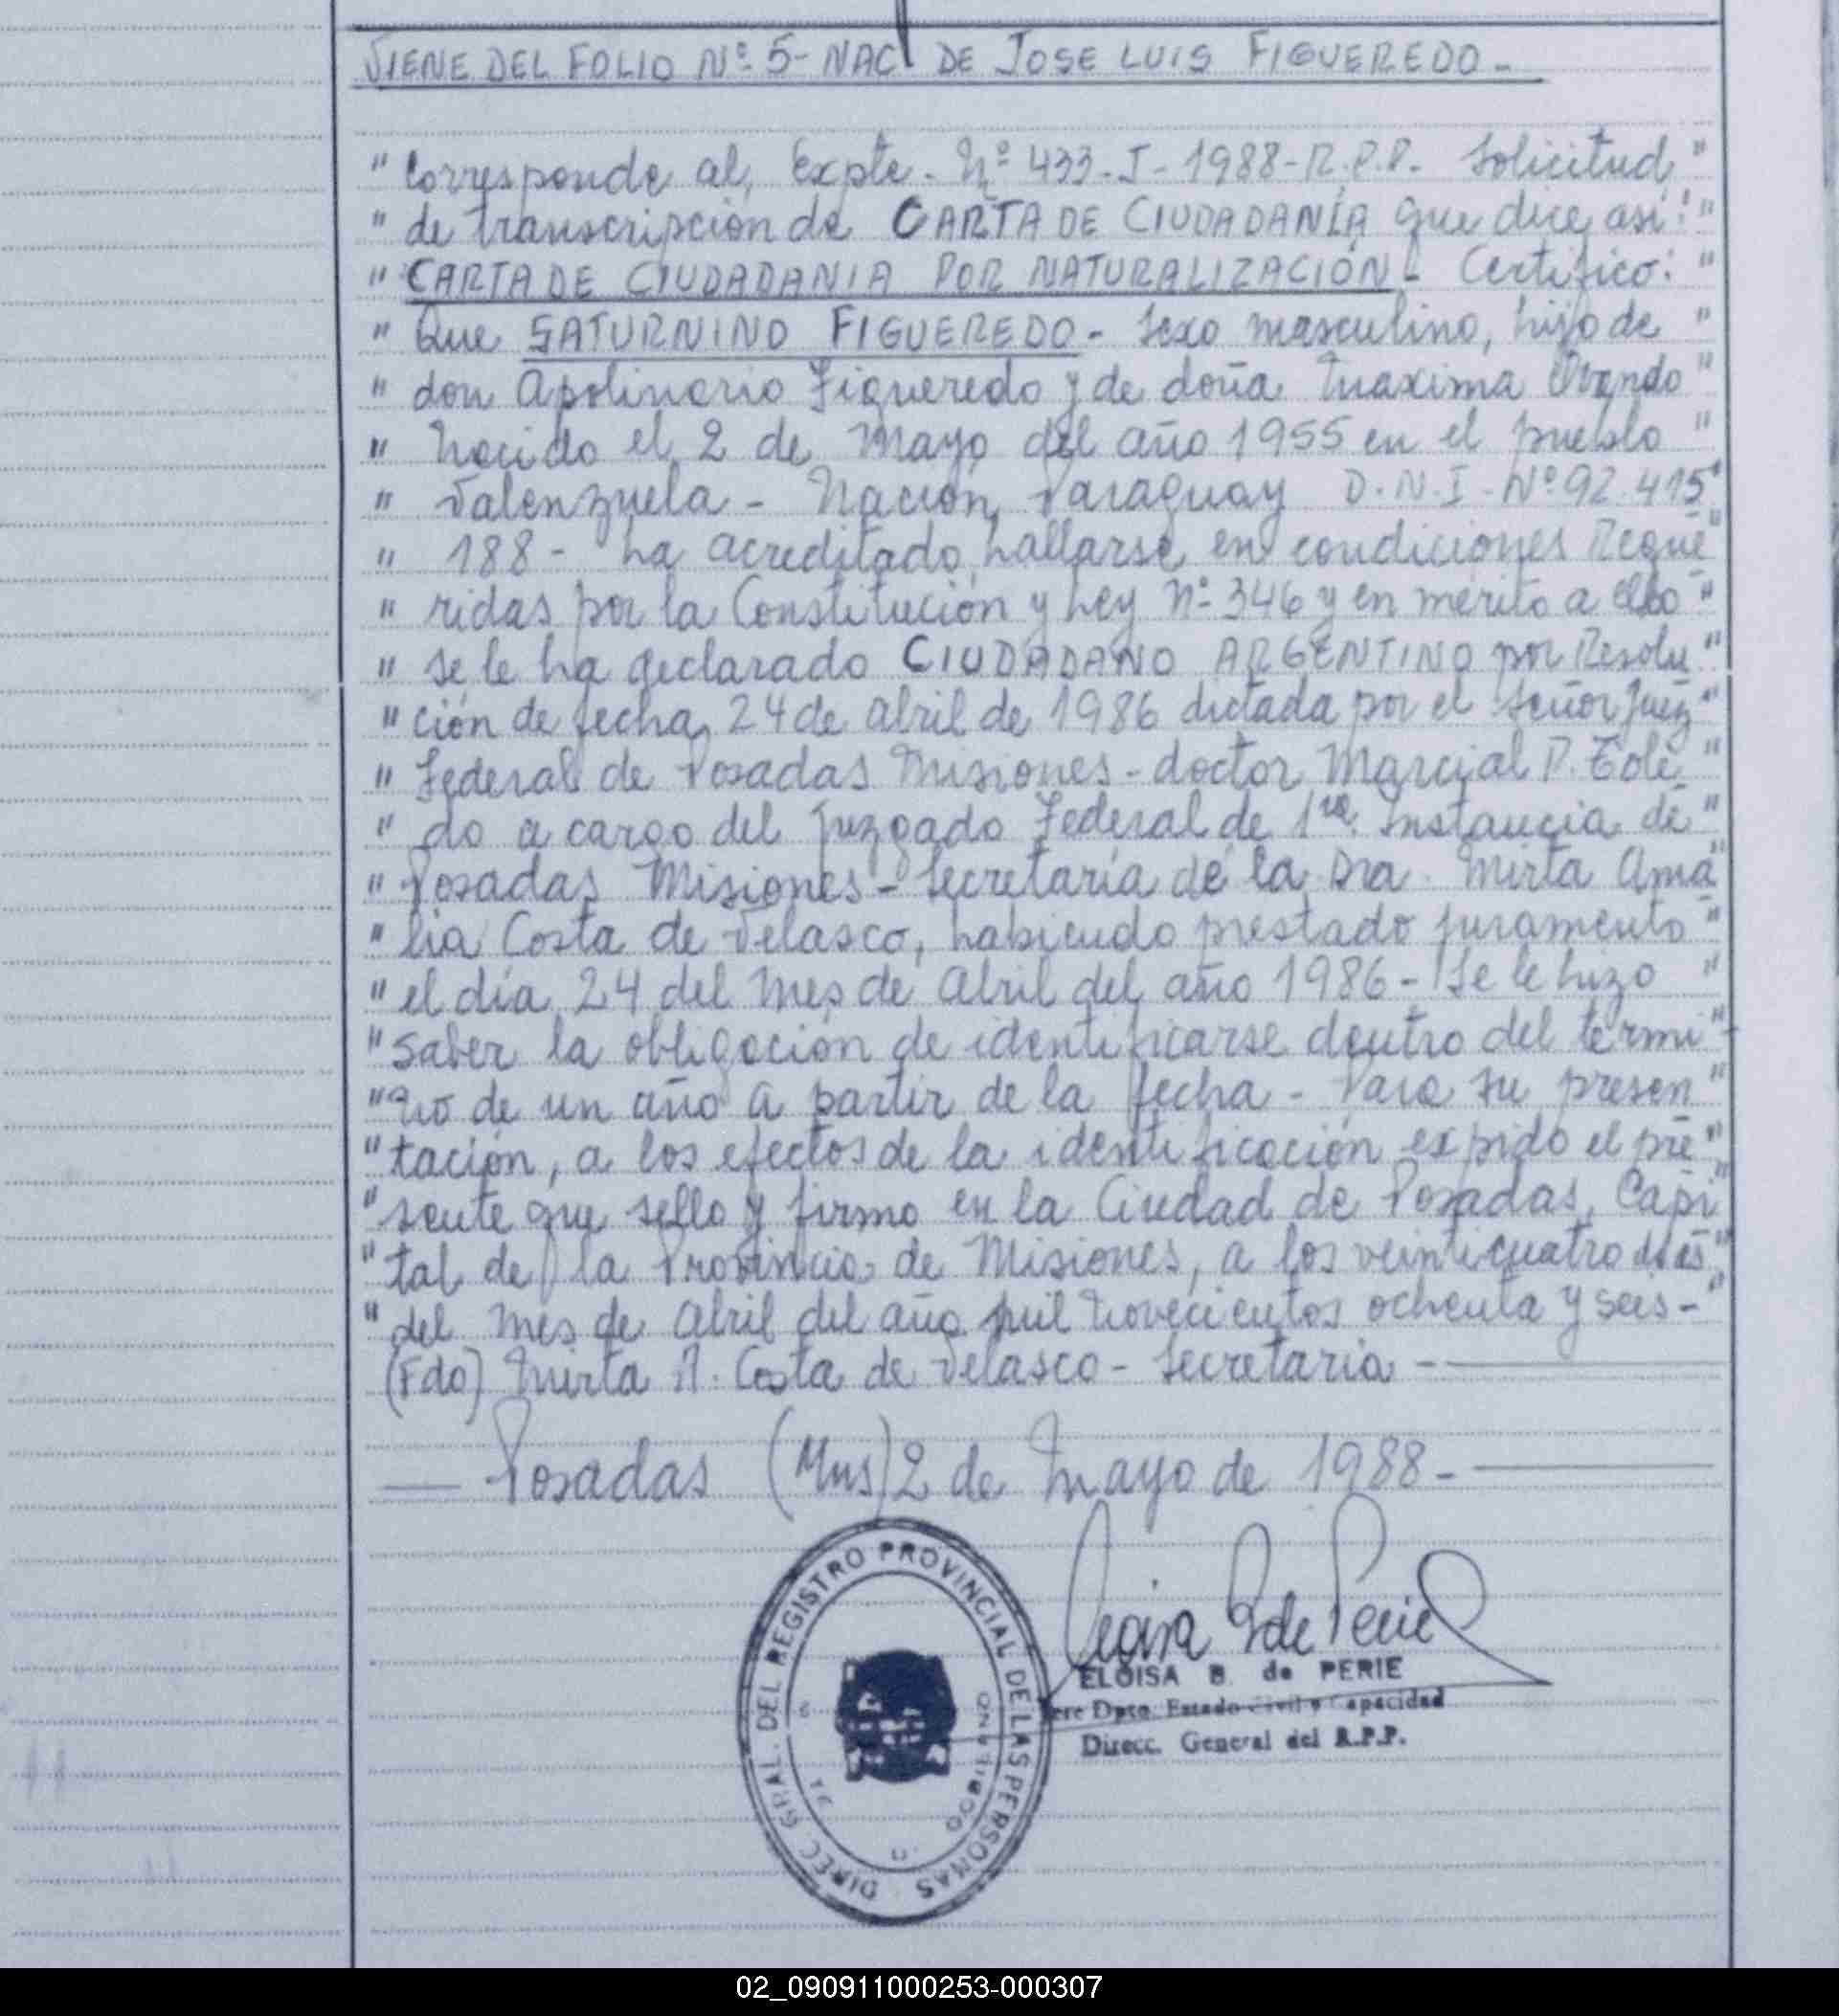 VIENE DEL FOLIO Nº 5- NAC DE JOSE LUIS FIGUEREDO -
" Corresponde al Expte - Nº 433-I-1988-R.P.P. Solicitud "
" de transcripción de CARTA DE CIUDADANÍA que dice así: "
" CARTA DE CIUDADANIA POR NATURALIZACIÓN - Certifico: "
" Que SATURNINO FIGUEREDO - Sexo masculino, hijo de "
" don Apolinario Figueredo y de doña Maxima Ovando "
" Nacido el 2 de Mayo del año 1955 en el pueblo "
" Valenzuela - Nación Paraguay D.N.I - Nº 92.415 "
" 188 - ha acreditado hallarse en condiciones Reque "
" ridas por la Constitución y Ley Nº 346 y en merito a ello "
" se le ha declarado CIUDADANO ARGENTINO por Resolu "
" ción de fecha 24 de Abril de 1986 dictada por el Señor Juez "
" Federal de Posadas Misiones - doctor Marcial P. Tole "
" do a cargo del Juzgado Federal de 1ra. Instancia de "
" Posadas Misiones - Secretaría de la Dra. Mirta Ama "
" lia Costa de Velasco, habiendo prestado juramento "
" el día 24 del Mes de Abril del año 1986 - Se le hizo "
" saber la obligación de identificarse dentro del termi "
" no de un año a partir de la fecha - Para su presen "
" tación, a los efectos de la identificación expido el pre "
" sente que sello y firmo en la Ciudad de Posadas, Capi "
" tal de la Provincia de Misiones, a los veinticuatro dias "
" del mes de Abril del año mil novecientos ochenta y seis - "
(Fdo) Mirta A. Costa de Velasco - Secretaria -
Posadas (Mns) 2 de Mayo de 1988 -
DIREC GRAL. DEL REGISTRO PROVINCIAL DE LAS PERSONAS
ELOISA B. de PERIE
Dpto. Estado Civil y Capacidad
Direcc. General del R.P.P.
02_090911000253-000307